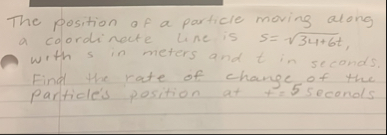 The position of a particle moving along
a coordinate line is s= √34+6t,
with s in meters and t in seconds.
Find the rate of change of the
particle's position at t=5 seconds